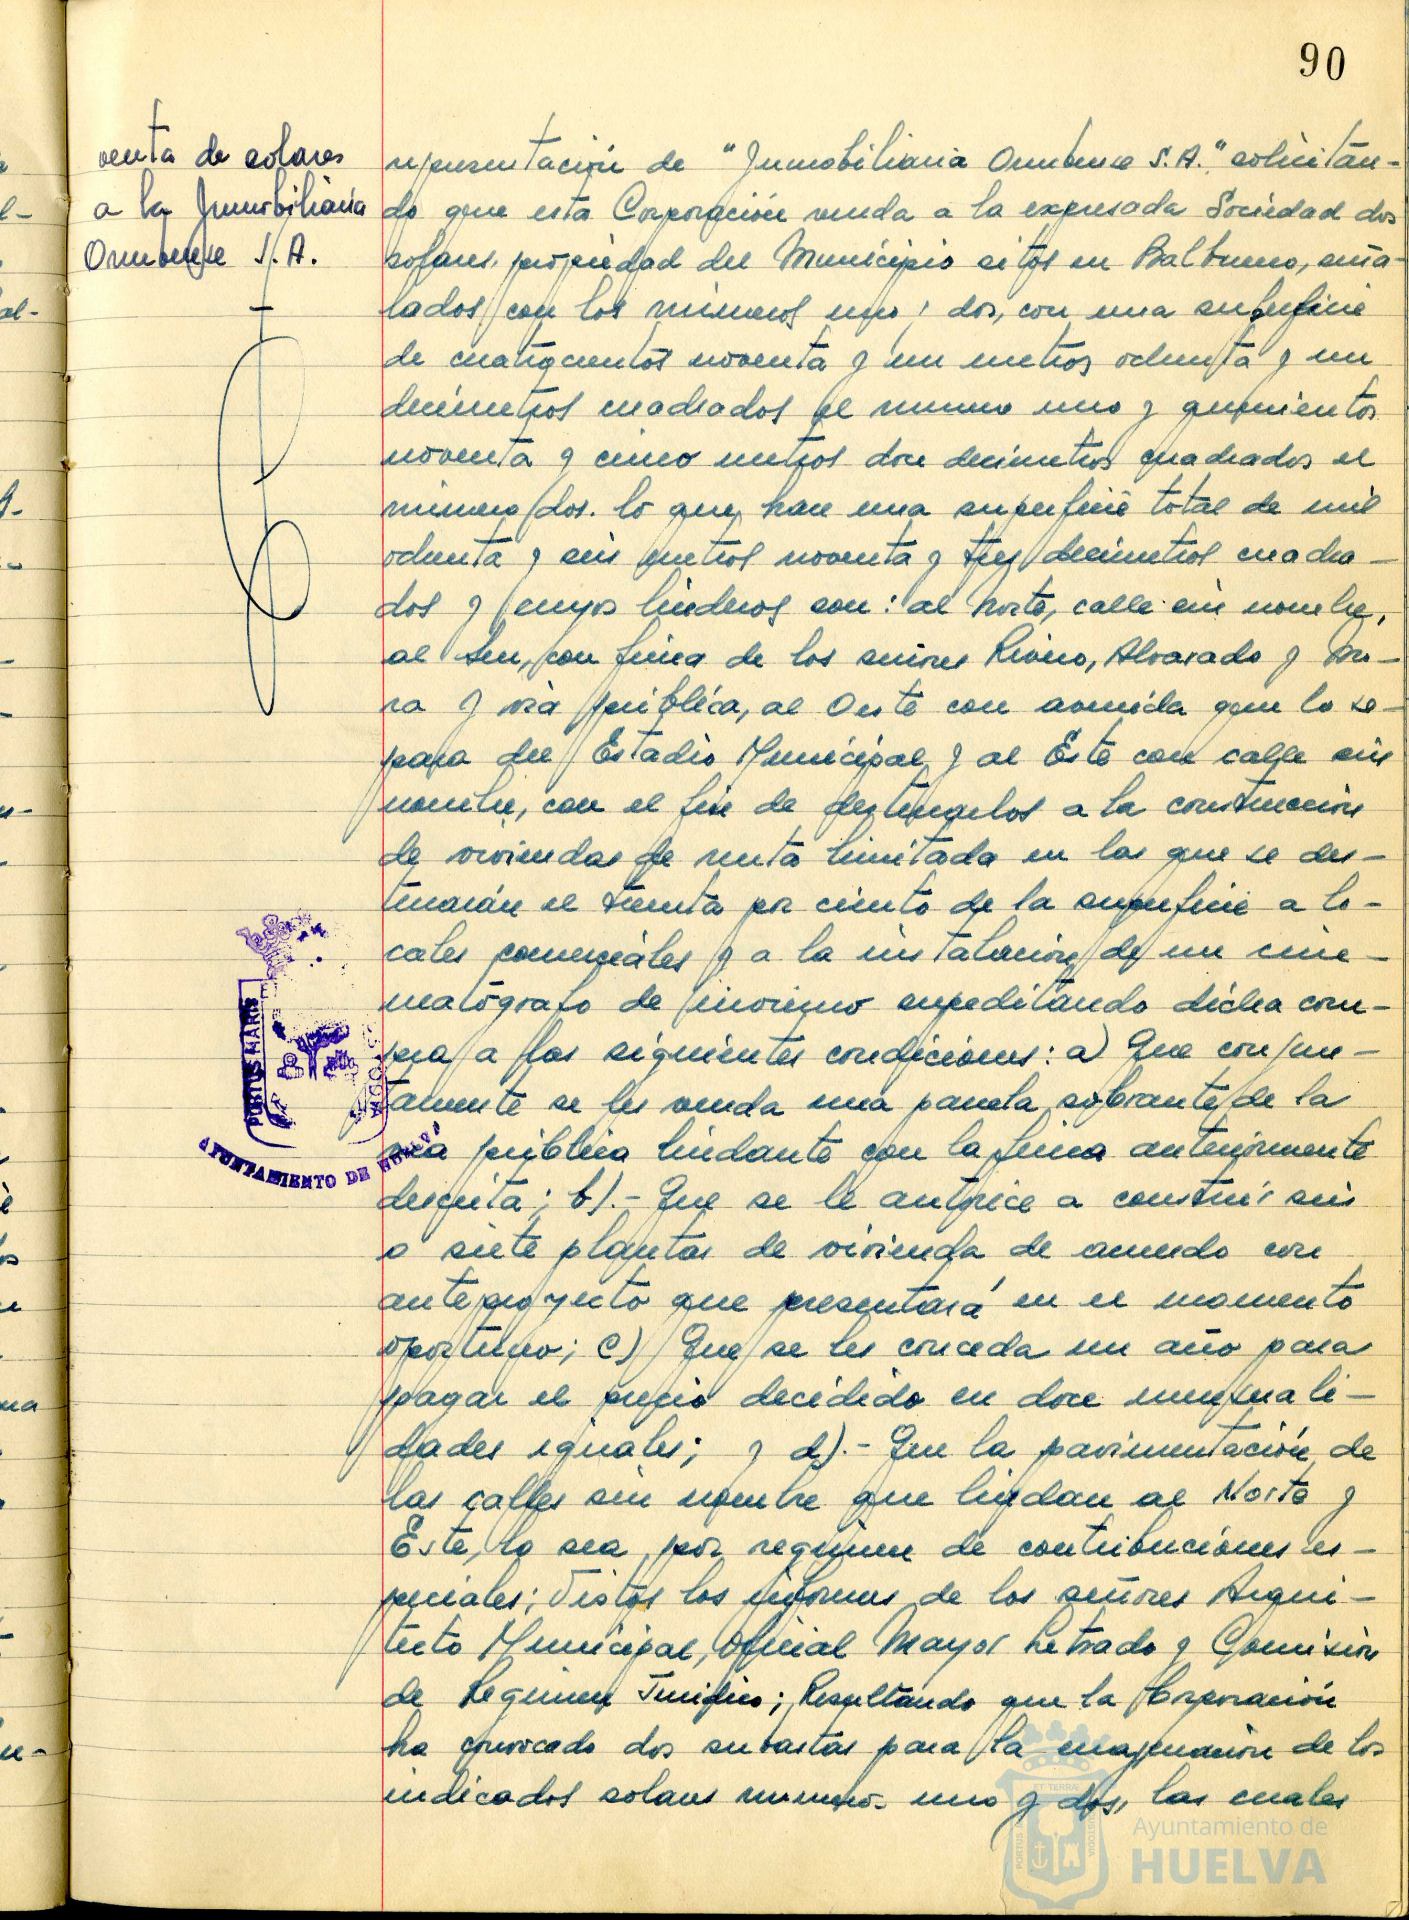 90
venta de solares
a la Inmobiliaria
Onubense S.A.
representación de "Inmobiliaria Onubense S.A." solicitan-
do que esta Corporación venda a la expresada Sociedad dos
solares, propiedad del Municipio sitos en Balbueno, seña-
lados con los números uno y dos, con una superficie
de cuatrocientos noventa y un metros ochenta y un
decímetros cuadrados el numero uno y quinientos
noventa y cinco metros doce decimetros cuadrados el
número dos. lo que hace una superficie total de mil
ochenta y seis metros noventa y tres decimetros cuadra-
dos y cuyos linderos son: al Norte, calle sin nombre,
al Sur, con finca de los señores Rivero, Alvarado y Mo-
ra y via pública, al Oeste con avenida que lo se-
para del Estadio Municipal y al Este con calle sin
nombre, con el fin de destinarlos a la construcción
de viviendas de renta limitada en las que se des-
tinarán el treinta por ciento de la superficie a lo-
cales comerciales y a la instalación de un cine-
matógrafo de invierno supeditando dicha com-
pra a las siguientes condiciones: a) Que conjun-
tamente se les venda una parcela sobrante de la
via pública lindante con la finca anteriormente
descrita; b).- Que se le autorice a construir seis
o siete plantas de vivienda de acuerdo con
anteproyecto que presentará en el momento
oportuno; c) Que se les conceda un año para
pagar el precio decidido en doce mensuali-
dades iguales; y d).- Que la pavimentación de
las calles sin nombre que lindan al Norte y
Este, lo sea por regimen de contribuciones es-
peciales; Vistos los informes de los señores Arqui-
tecto Municipal, Oficial Mayor Letrado y Comisión
de Regimen Juridico; Resultando que la Corporación
ha convocado dos subastas para la enajenación de los
indicados solares numeros uno y dos, las cuales
PORTUS MARIS
CUSTODIA
AYUNTAMIENTO DE HUELVA
ET TERRAE
Ayuntamiento de
HUELVA